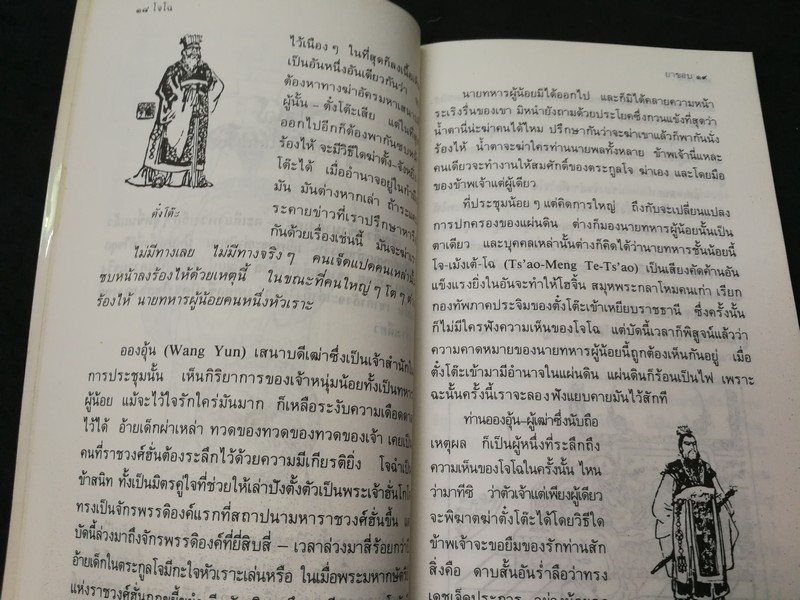 ๑๘ โจโฉ
ไว้เนืองๆ ในที่สุดก็ลงเนื้อเ
เป็นอันหนึ่งอันเดียวกันว่า
ต้องหาทางฆ่าอัครมหาเสนา
ผู้นั้น – ตั๋งโต๊ะเสีย แต่ในที่
ออกไปอีกก็ต้องพากันซบหน้
ร้องไห้ จะมีวิธีใดฆ่าตั๋ง-จังหนึ่
โต๊ะได้ เมื่ออำนาจอยู่ในกำมื
มัน มันต่างหากเล่า ถ้าระแค
ระคายข่าวที่เราปรึกษาหารื
กันด้วยเรื่องเช่นนี้ มันจะฆ่าเ
ตั๋งโต๊ะ
ไม่มีทางเลย ไม่มีทางจริงๆ คนเจ็ดแปดคนเหล่านั้
ซบหน้าลงร้องไห้ด้วยเหตุนี้ ในขณะที่คนใหญ่ๆ โตๆ
ร้องไห้ นายทหารผู้น้อยคนหนึ่งหัวเราะ
อองอุ้น (Wang Yun) เสนาบดีเฒ่าซึ่งเป็นเจ้าสำนักใ
การประชุมนั้น เห็นกิริยาการของเจ้าหนุ่มน้อยทั้งเป็นทหาร
ผู้น้อย แม้จะไว้ใจรักใคร่มันมาก ก็เหลือระงับความเดือดดา
ไว้ได้ อ้ายเด็กผ่าเหล่า ทวดของทวดของทวดของเจ้า เคยเป็
คนที่ราชวงศ์ฮั่นต้องระลึกไว้ด้วยความมีเกียรติยิ่ง โจฉำเป็
ข้าสนิท ทั้งเป็นมิตรคู่ใจที่ช่วยให้เล่าปังตั้งตัวเป็นพระเจ้าฮั่นโกโ
ทรงเป็นจักรพรรดิองค์แรกที่สถาปนามหาราชวงศ์ฮั่นขึ้น
บัดนี้ล่วงมาถึงจักรพรรดิองค์ที่ยี่สิบสี่ – เวลาล่วงมาสี่ร้อยกว่า
อ้ายเด็กในตระกูลโจมีกะใจหัวเราะเล่นหรือ ในเมื่อพระมหากษัตริ
แห่งราชวงศ์ฮั่นถูกขยี้
ยาขอบ ๑๙
นายทหารผู้น้อยมิได้ออกไป และก็มิได้คลายความหน้า
ระเริงรื่นของเขา มิหนำยังถามด้วยประโยคซึ่งกวนแข้งที่สุดว่า
น้ำตานี่น่ะฆ่าคนได้ไหม ปรึกษากันว่าจะฆ่าเขาแล้วก็พากันนั่ง
ร้องไห้ น้ำตาจะฆ่าใครท่านนายพลทั้งหลาย ข้าพเจ้านี่แหละ
คนเดียวจะทำงานให้สมศักดิ์ของตระกูลโจ ฆ่าเอง และโดยมือ
ของข้าพเจ้าแต่ผู้เดียว
ที่ประชุมน้อยๆ แต่คิดการใหญ่ ถึงกับจะเปลี่ยนแปลง
การปกครองของแผ่นดิน ต่างก็มองนายทหารผู้น้อยนั้นเป็น
ตาเดียว และบุคคลเหล่านั้นต่างก็คิดได้ว่านายทหารชั้นน้อยนี้
โจ-เม้งเต้-โฉ (Ts'ao-Meng Te-Ts'ao) เป็นเสียงคัดค้านอัน
แข็งแรงยิ่งในอันจะทำให้โฮจิ๋น สมุหพระกลาโหมคนเก่า เรียก
กองทัพภาคประจิมของตั๋งโต๊ะเข้าเหยียบราชธานี ซึ่งครั้งนั้น
ก็ไม่มีใครฟังความเห็นของโจโฉ แต่บัดนี้เวลาก็พิสูจน์แล้วว่า
ความคาดหมายของนายทหารผู้น้อยนี้ถูกต้องเห็นกันอยู่ เมื่อ
ตั๋งโต๊ะเข้ามามีอำนาจในแผ่นดิน แผ่นดินก็ร้อนเป็นไฟ เพราะ
ฉะนั้นครั้งนี้เราจะลองฟังแยบคายมันไว้สักที
ท่านอองอุ้น-ผู้เฒ่าซึ่งนับถือ
เหตุผล ก็เป็นผู้หนึ่งที่ระลึกถึง
ความเห็นของโจโฉในครั้งนั้น ไหน
ว่ามาทีซิ ว่าตัวเจ้าแต่เพียงผู้เดียว
จะพิฆาตฆ่าตั๋งโต๊ะได้โดยวิธีใด
ข้าพเจ้าจะขอยืมของรักท่านสัก
สิ่งคือ ดาบสั้นอันร่ำลือว่าทรง
เดชเจ็ดประการ